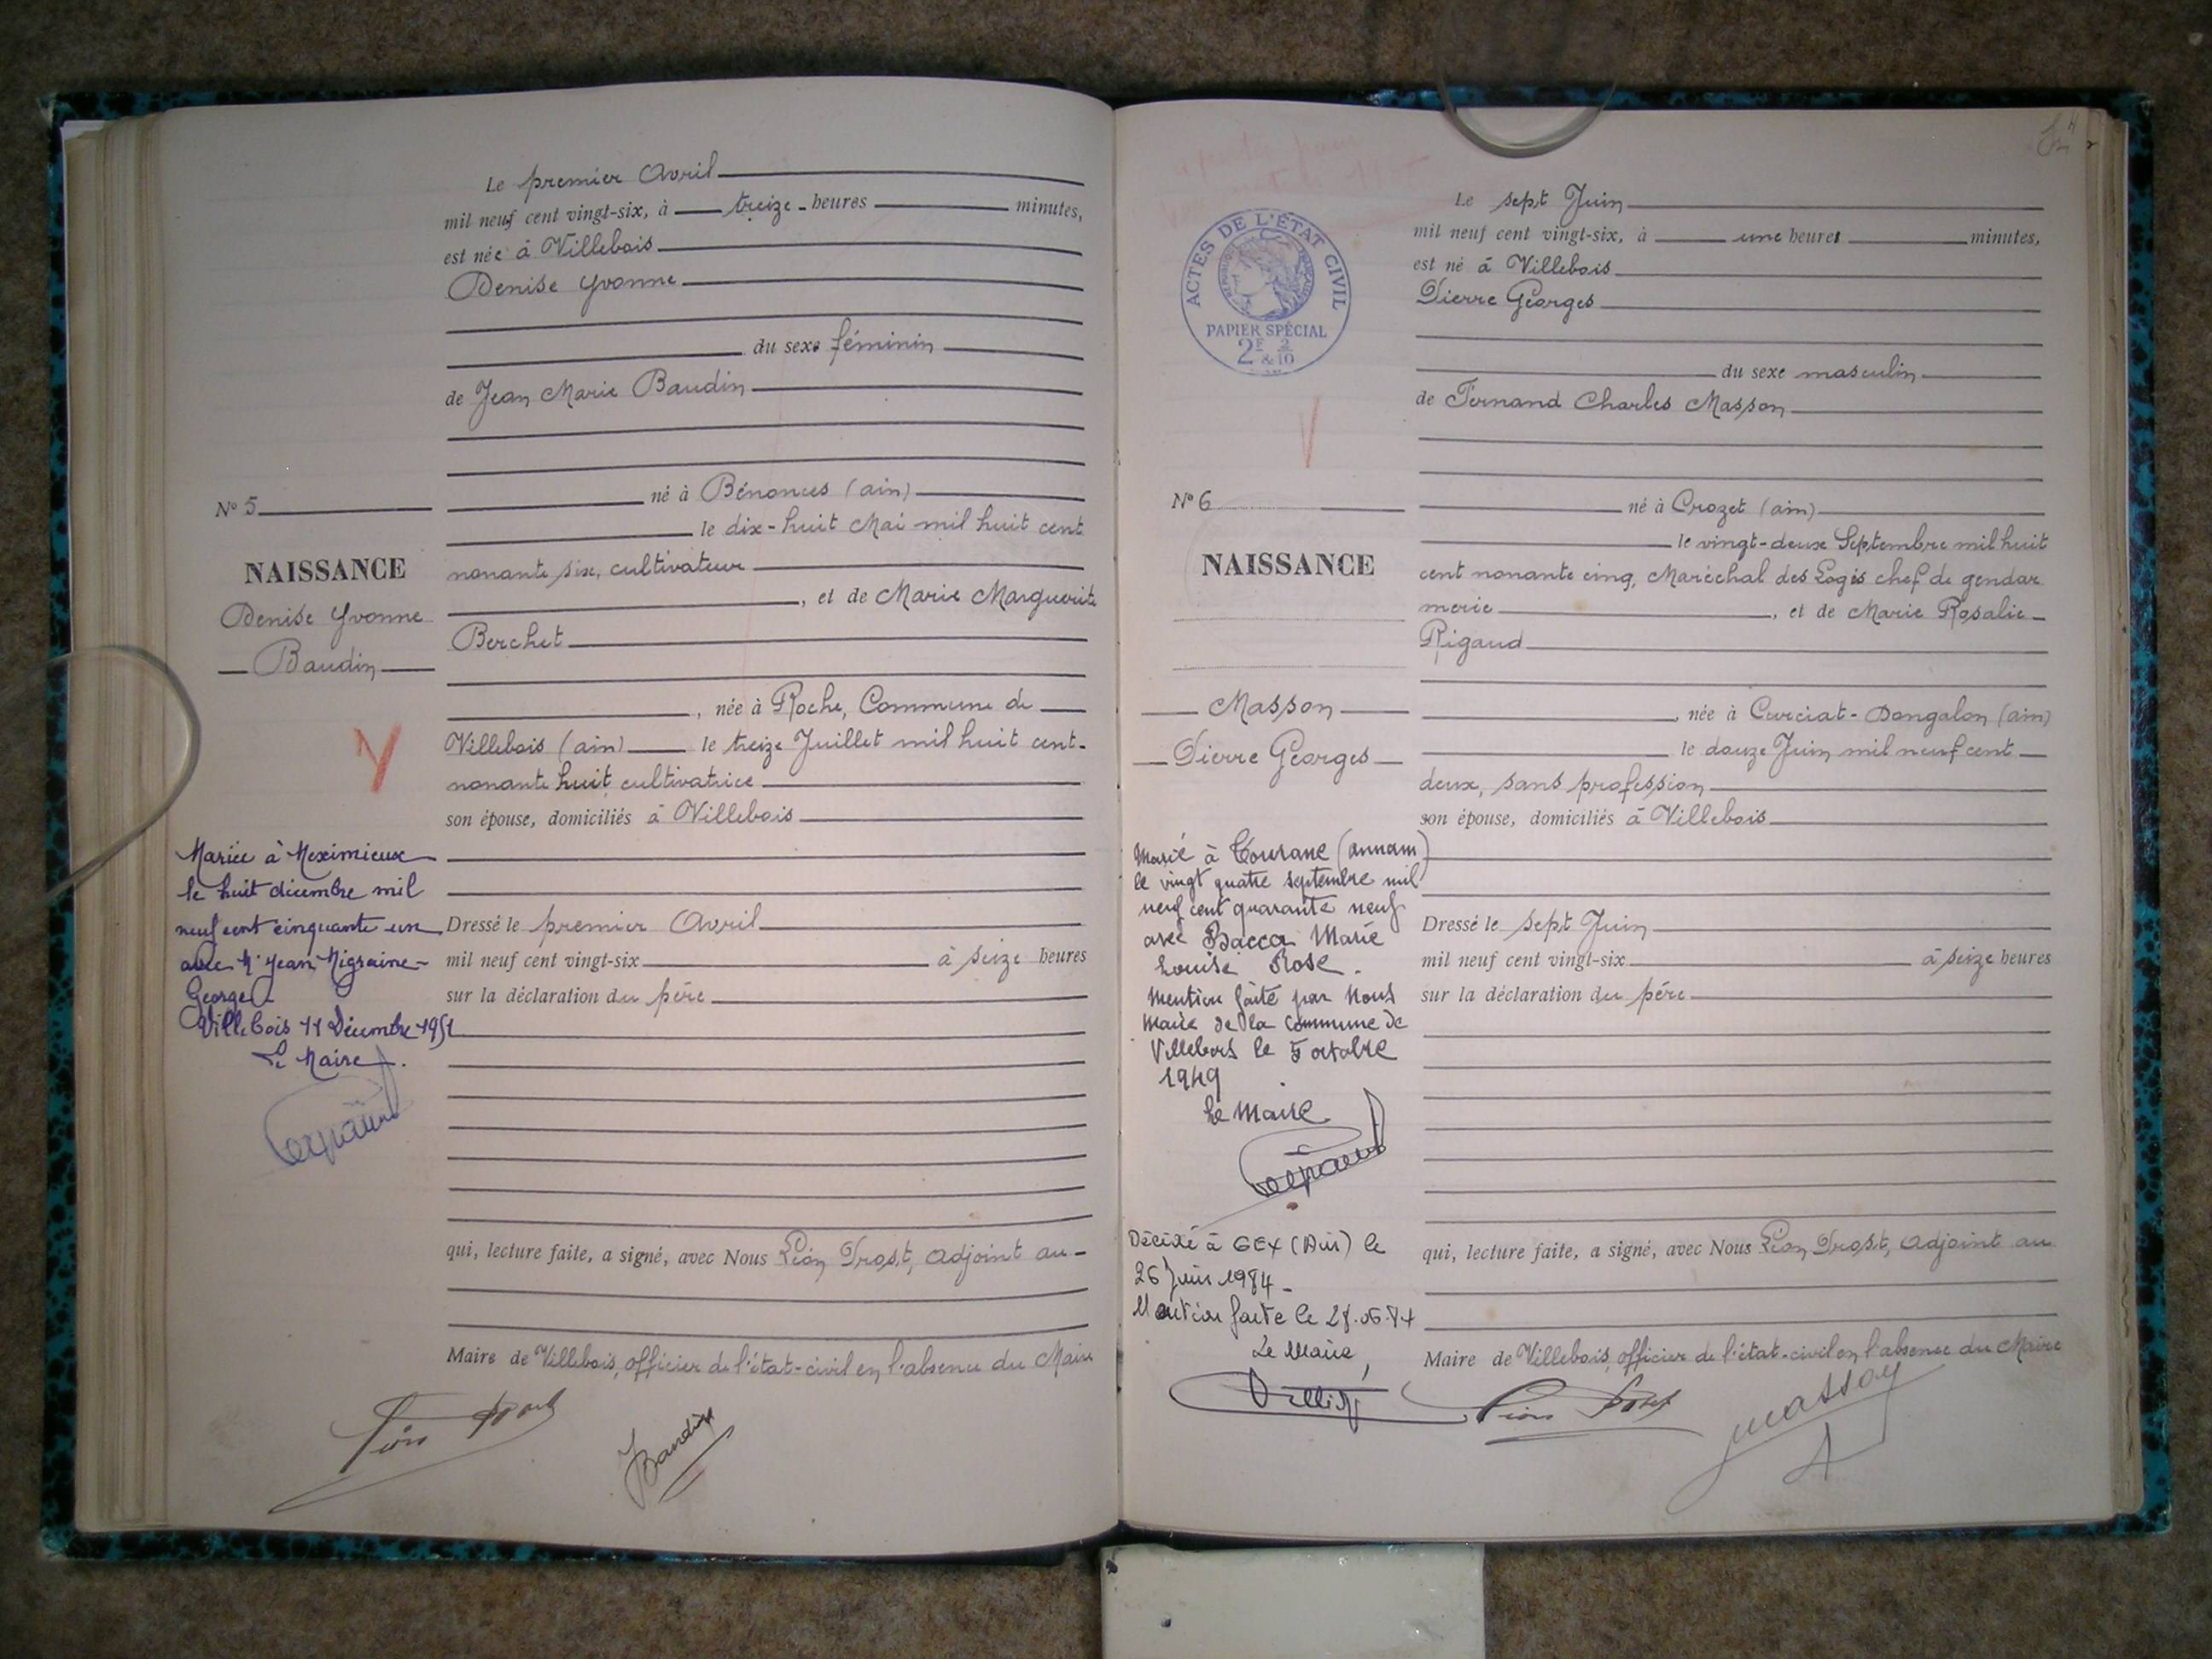 Le premier Avril
mil neuf cent vingt-six, à treize heures minutes,
est née à Villebois
Denise Yvonne
du sexe féminin
de Jean Marie Baudin
né à Bénonces (ain)
le dix-huit Mai mil huit cent
nonante six, cultivateur
, et de Marie Marguerite
Berchet
, née à Roche, Commune de
Villebois (ain) le treize Juillet mil huit cent-
nonante huit, cultivatrice
son épouse, domiciliés à Villebois
Dressé le premier Avril
mil neuf cent vingt-six à seize heures
sur la déclaration du père
qui, lecture faite, a signé, avec Nous Léon Drost, adjoint au-
Maire de Villebois, officier de l'état-civil en l'absence du Maire
Léon Drost
J Baudin
N° 5
NAISSANCE
Denise Yvonne
Baudin
Mariée à Meximieux
le huit décembre mil
neuf cent cinquante un
avec Mr Jean Migraine-
Georges
Villebois 11 Décembre 1951
Le Maire.
ACTES DE L'ÉTAT CIVIL
RÉPUBLIQUE FRANÇAISE
PAPIER SPÉCIAL
2F & 2/10
Le sept Juin
mil neuf cent vingt-six, à une heure minutes,
est né à Villebois
Pierre Georges
du sexe masculin
de Fernand Charles Masson
né à Crozet (ain)
le vingt-deux Septembre mil huit
cent nonante cinq, Maréchal des Logis chef de gendar
merie, et de Marie Rosalie
Rigaud
, née à Curciat-Dongalon (ain)
le douze Juin mil neuf cent
deux, sans profession
son épouse, domiciliés à Villebois
Dressé le sept Juin
mil neuf cent vingt-six à seize heures
sur la déclaration du père
qui, lecture faite, a signé, avec Nous Léon Drost, adjoint au
Maire de Villebois, officier de l'état-civil en l'absence du Maire
Léon Drost
Masson
N° 6
NAISSANCE
Masson
Pierre Georges
Marié à Tourane (Annam)
le vingt quatre septembre mil
neuf cent quarante neuf
avec Bacca Marie
Louise Rose.
Mention faite par Nous
Maire de la commune de
Villebois le 5 octobre
1949
Le Maire
Décédé à GEX (Ain) le
26 Juin 1984
Mention faite le 28.06.84
Le Maire,